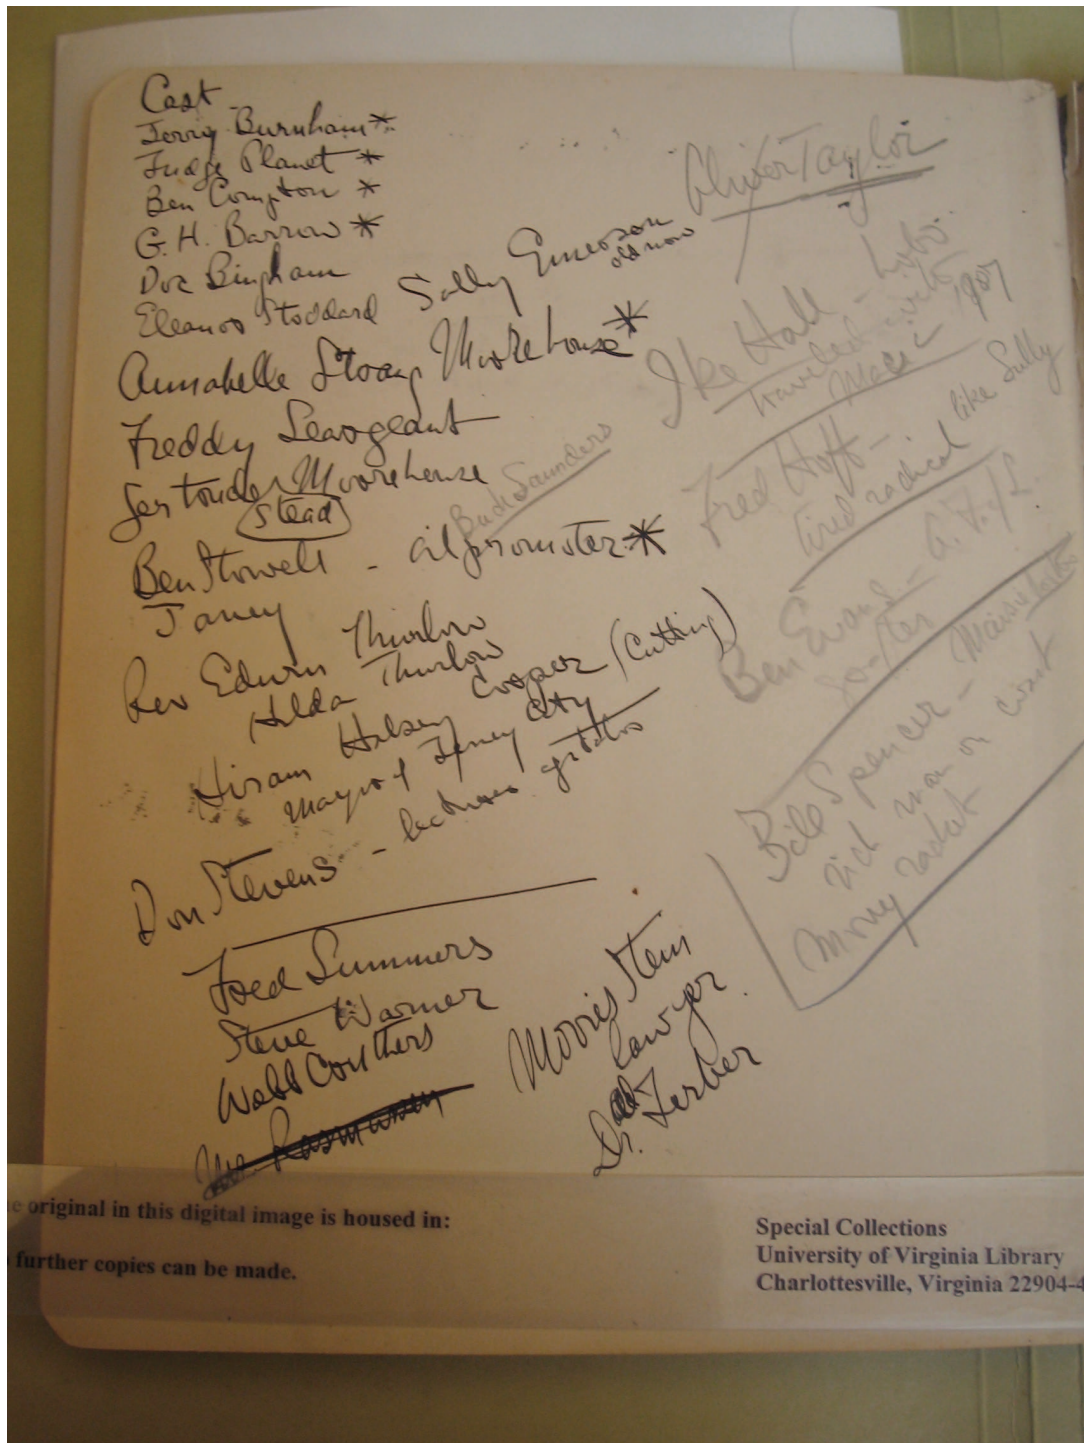 Cast
Jerry Burnham *
Judge Planet *
Ben Compton *
G.H. Barrow *
Doc Bingham
Eleanor Stoddard
Sally Emerson
old now
Annabelle Strang Moorehouse *
Freddy Seargeant
Gertrude Moorehouse
Stead
Ben Stowell - oil promoter *
Janey
Rev Edwin Thurlow
Hilda Thurlow
Hiram Halsey Cooper (Cutting)
Mayor of Jersey City
Don Stevens - lectures
Fred Summers
Steve Warner
Webb Cruthers
Morris Stein
lawyer
Dr. Ferber
Oliver Taylor
Ike Hall -
traveled with
Mac -
Fred Hoff -
tired radical like Sally
Bud Saunders
Ben Evans - A.F. of L.
Bill Spencer -
rich man on coast
Money racket
e original in this digital image is housed in:
further copies can be made.
Special Collections
University of Virginia Library
Charlottesville, Virginia 22904-4